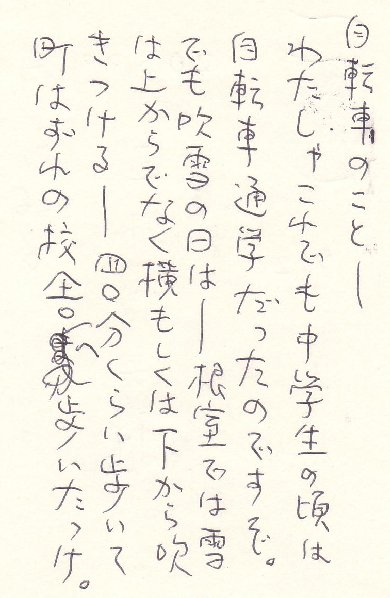 自転車のことー
わたしゃこれでも中学生の頃は
自転車通学だったのですぞ。
でも吹雪の日はー根室では雪
は上からでなく横もしくは下から吹
きつけるー四〇分くらい歩いて
町はずれの校舎へ歩いたっけ。